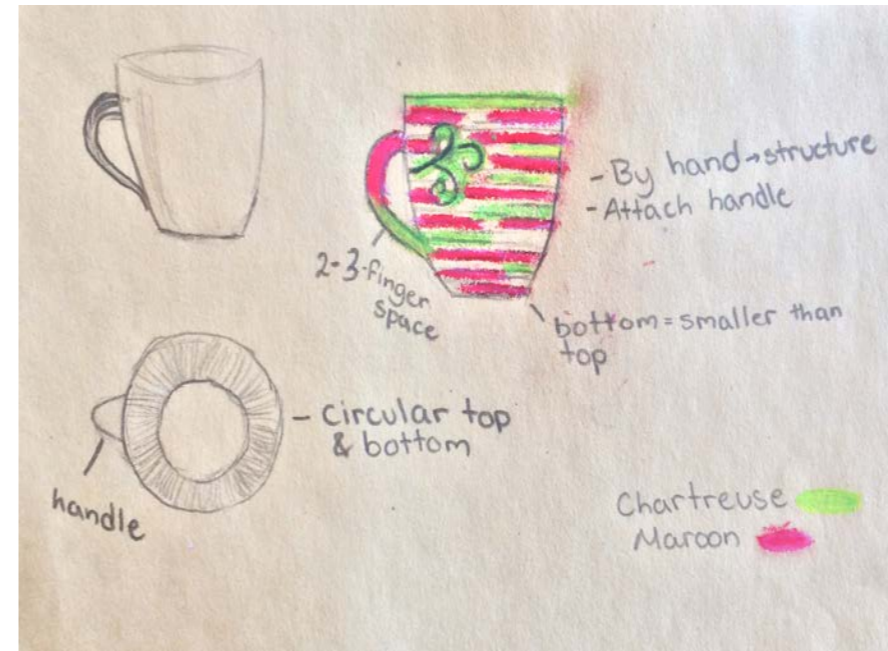 - By hand → structure
- Attach handle
2-3-finger
space
bottom = smaller than
top
- Circular top
& bottom
handle
Chartreuse
Maroon